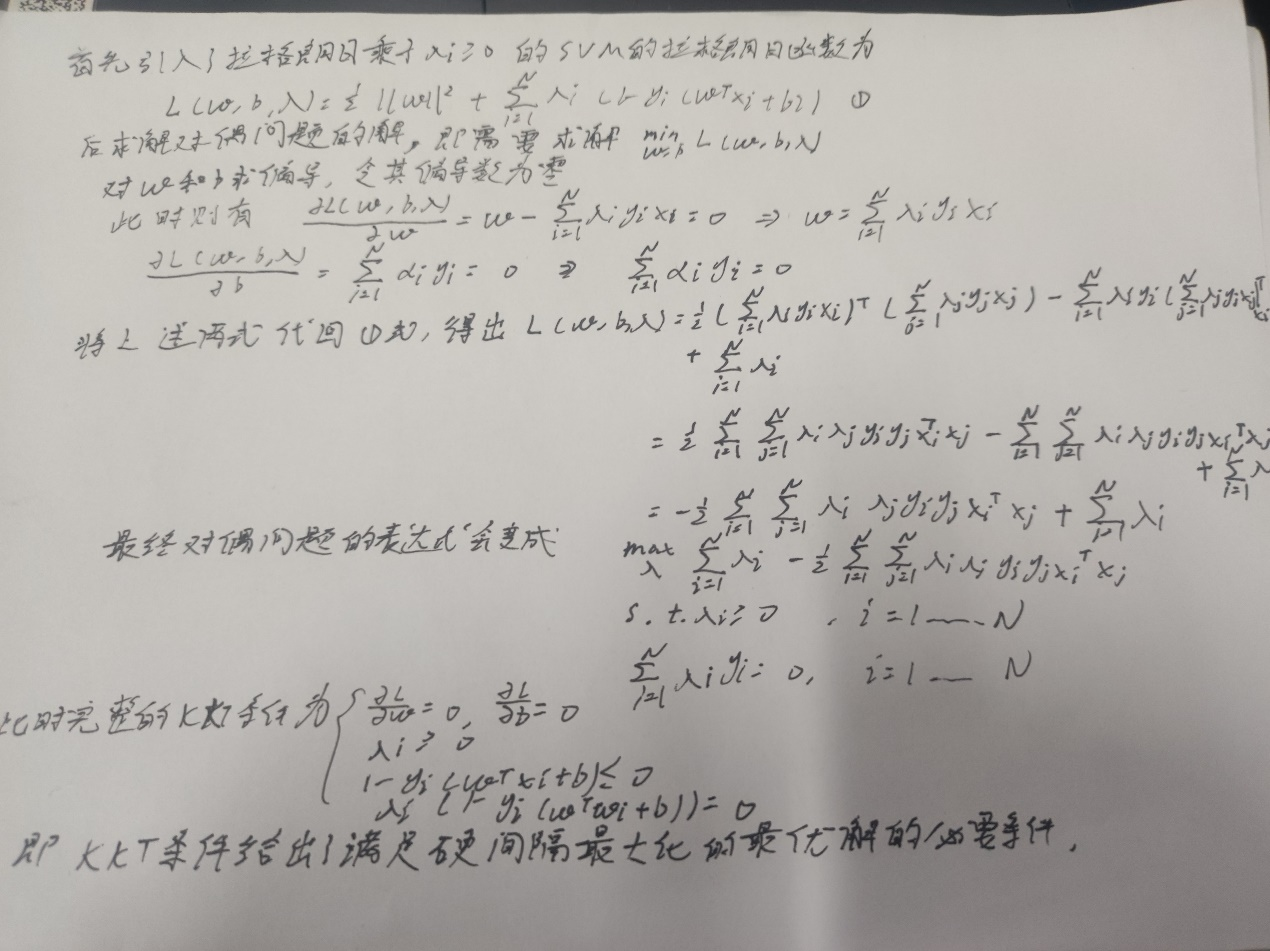 首先引入了拉格朗日乘子 λi≥0 的SVM的拉格朗日函数为
L(w,b,λ)=½||w||² + ∑_{i=1}^{N} λi (1-yi(wᵀxi+b)) ①
后求解对偶问题的解，即需要求解 min_{w,b} L(w,b,λ)
对w和b求偏导，令其偏导数为零
此时则有 ∂L(w,b,λ)/∂w = w - ∑_{i=1}^{N} λiyixi = 0 ⇒ w = ∑_{i=1}^{N} λiyixi
∂L(w,b,λ)/∂b = ∑_{i=1}^{N} αiyi = 0 ⇒ ∑_{i=1}^{N} αiyi = 0
将上述两式代回①式，得出 L(w,b,λ) = ½(∑_{i=1}^{N} λiyixi)ᵀ(∑_{j=1}^{N} λjyjxj) - ∑_{i=1}^{N} λiyi(∑_{j=1}^{N} λjyjxj)ᵀxi
+ ∑_{i=1}^{N} λi
= ½ ∑_{i=1}^{N} ∑_{j=1}^{N} λiλjyiyjxiᵀxj - ∑_{i=1}^{N} ∑_{j=1}^{N} λiλjyiyjxiᵀxj
+ ∑_{i=1}^{N} λ
= -½ ∑_{i=1}^{N} ∑_{j=1}^{N} λiλjyiyjxiᵀxj + ∑_{i=1}^{N} λi
最终对偶问题的表达式会变成 max_λ ∑_{i=1}^{N} λi - ½ ∑_{i=1}^{N} ∑_{j=1}^{N} λiλjyiyjxiᵀxj
s.t. λi≥0 , i=1……N
∑_{i=1}^{N} λiyi=0, i=1…N
此时完整的KKT条件为 { ∂L/∂w=0, ∂L/∂b=0
λi≥0
1-yi(wᵀxi+b)≤0
λi(1-yi(wᵀwi+b))=0
即KKT条件给出了满足硬间隔最大化的最优解的必要条件.